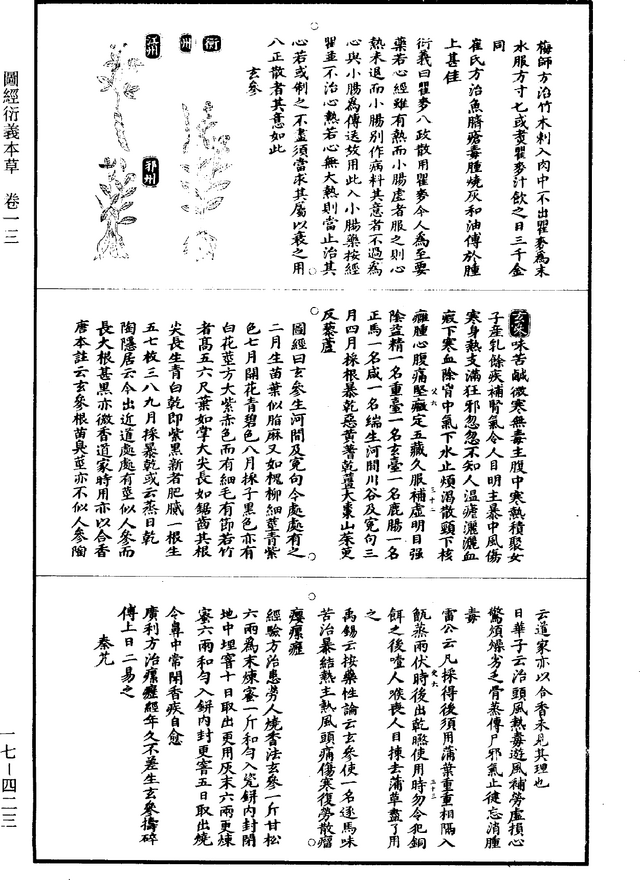 圖經衍義本草 卷一三
一七—四二三
梅師方治竹木刺入肉中不出瞿麥為末
水服方寸匕或煑瞿麥汁飲之日三千金
同
崔氏方治魚臍瘡毒腫燒灰和油傅於腫
上甚佳
衍義曰瞿麥八政散用瞿麥今人為至要
藥若心經雖有熱而小腸虛者服之則心
熱未退而小腸別作病料其意者不過為
心與小腸為傳送故用此入小腸藥按經
瞿並不治心熱若心無大熱則當止治其
心若或制之不盡須當求其屬以衰之用
八正散者其意如此
玄參
衍州
江州
邢州
玄參味苦鹹微寒無毒主腹中寒熱積聚女
子產乳餘疾補腎氣令人目明主暴中風傷
寒身熱支滿狂邪忽忽不知人温瘧灑灑血
瘕下寒血除胷中氣下水止煩渴散頸下核
癰腫心腹痛堅癥定五藏久服補虛明目强
陰益精一名重臺一名玄臺一名鹿腸一名
正馬一名咸一名端生河間川谷及寃句三
月四月採根暴乾惡黄蓍乾薑大棗山茱萸
反藜蘆
圖經曰玄參生河間及寃句今處處有之
二月生苗葉似脂麻又如槐柳細莖青紫
色七月開花青碧色八月採子黑色亦有
白花莖方大紫赤色而有細毛有節若竹
者高五六尺葉如掌大尖長如鋸齒其根
尖長生青白乾即紫黑新者肥膩一根生
五七枚三八九月採暴乾或云蒸日乾
陶隱居云今出近道處處有莖似人參而
長大根甚黑亦微香道家時用亦以合香
唐本註云玄參根苗臭莖亦不似人參陶
云道家亦以合香未見其理也
日華子云治頭風熱毒遊風補勞虛損心
驚煩燥劣乏骨蒸傳尸邪氣止健忘消腫
毒
雷公云凡採得後須用蒲葉重重相隔入
甑蒸兩伏時後出乾曬使用時勿令犯銅
餌之後噎人喉喪人目揀去蒲草盡了用
之
禹錫云按藥性論云玄參使一名逐馬味
苦治暴結熱主熱風頭痛傷寒復勞散瘤
癭瘰癧
經驗方治患勞人燒香法玄參一斤甘松
六兩為末煉蜜一斤和勻入瓷缾内封閉
地中埋窨十日取出更用灰末六兩更煉
蜜六兩和勻入缾内封更窨五日取出燒
令鼻中常聞香疾自愈
廣利方治瘰癧經年久不差生玄參擣碎
傅上日二易之
秦艽